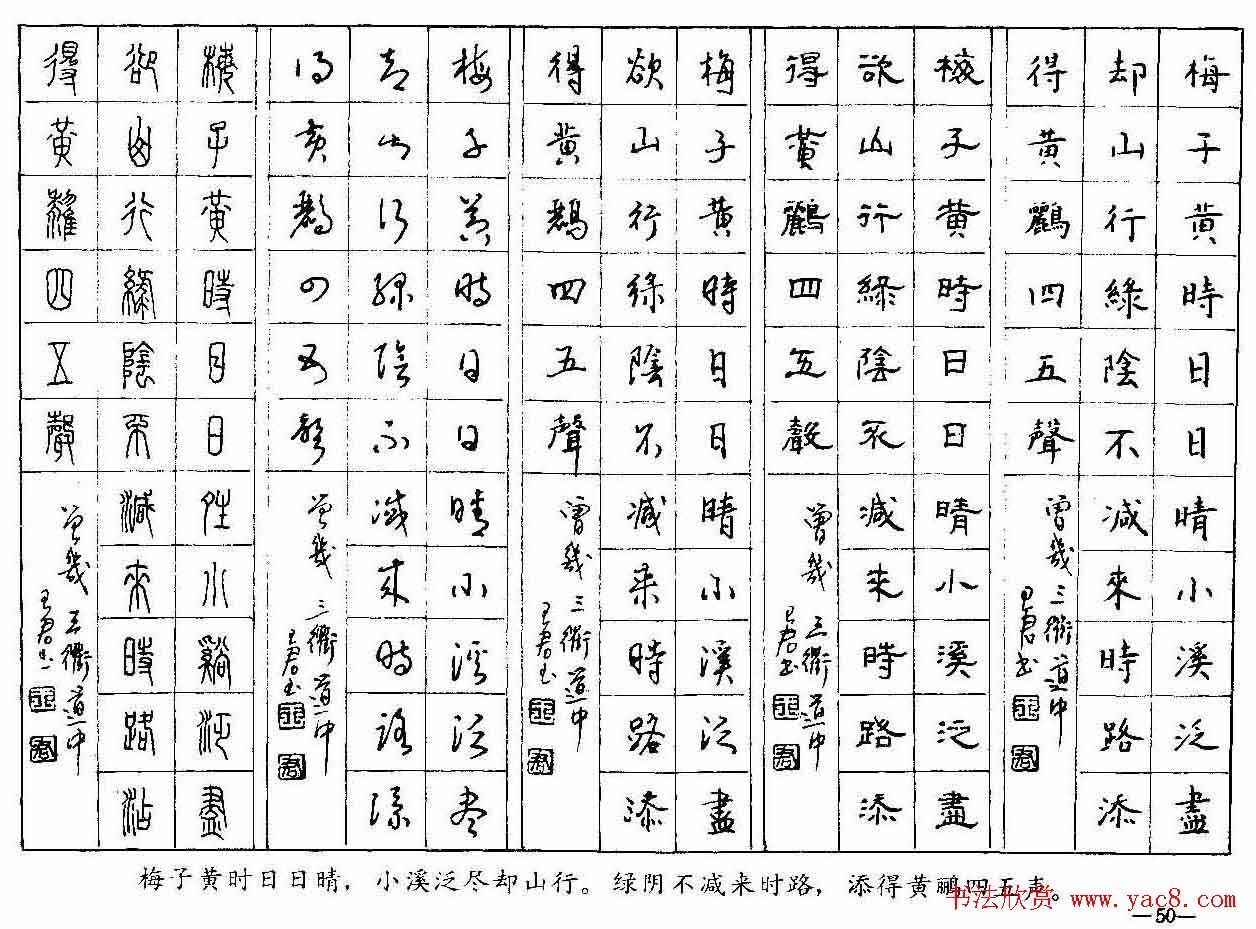 梅子黄時日日晴小溪泛盡
却山行綠陰不減來時路添
得黄鸝四五聲
曾幾 三衢道中
王君书
梅子黄時日日晴小溪泛盡
欲山行綠陰不減來時路添
得黄鸝四五聲
曾幾 三衢道中
王君书
梅子黄時日日晴小溪泛盡
欲山行绿陰不減来時路添
得黄鹂四五聲
曾幾 三衢道中
王君书
梅子黄時日日晴小溪泛尽
却山行绿陰不減来時路添
得黄鹂四五聲
曾幾 三衢道中
王君书
梅子黄時日日晴小谿泛盡
卻山行綠陰不減來時路沾
得黄鸝四五聲
曾幾 三衢道中
王君书
梅子黄时日日晴，小溪泛尽却山行。绿阴不减来时路，添得黄鹂四五声。
书法欣赏 www.yac8.com
—50—